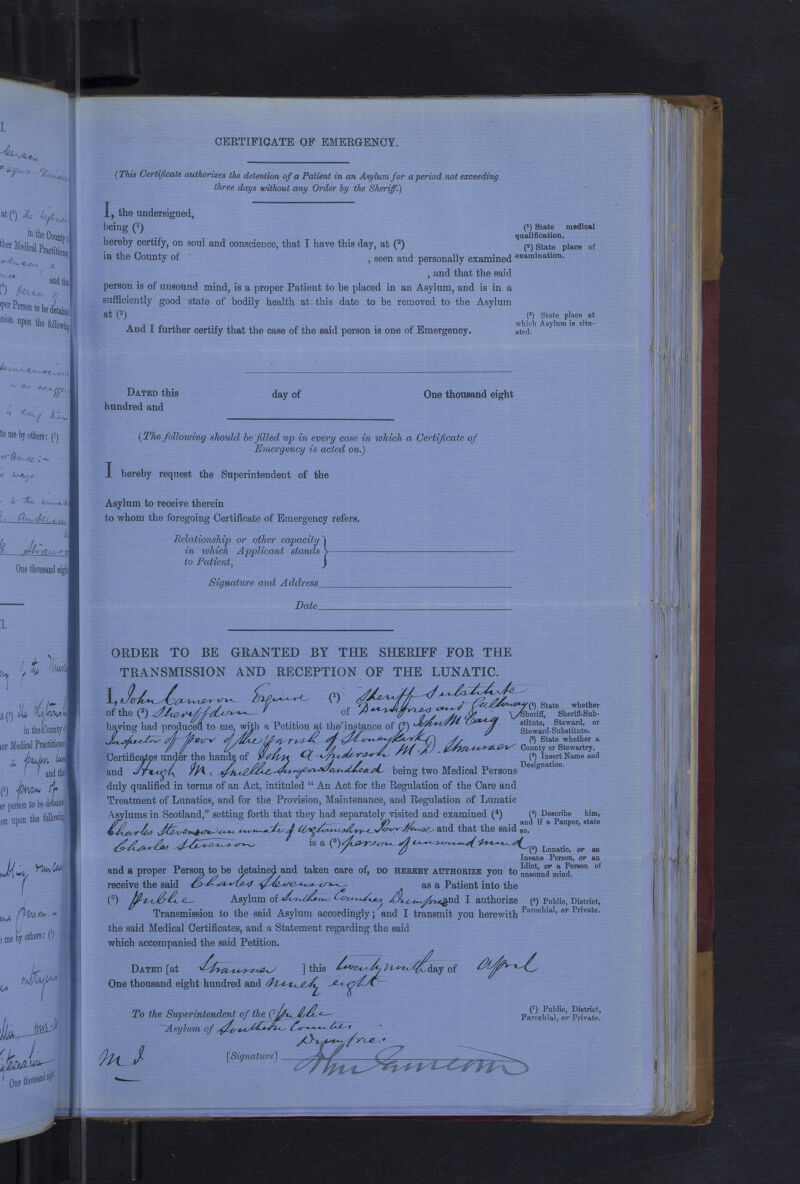 CERTIFICATE OF EMERGENCY.
(This Certificate authorizes the detention of a Patient in an Asylum for a period not exceeding
three days without any Order by the Sheriff.)
I, the undersigned,
being (¹)
hereby certify, on soul and conscience, that I have this day, at (²)
in the County of , seen and personally examined
, and that the said
person is of unsound mind, is a proper Patient to be placed in an Asylum, and is in a
sufficiently good state of bodily health at this date to be removed to the Asylum
at (³)
And I further certify that the case of the said person is one of Emergency.
(¹) State medical
qualification.
(²) State place of
examination.
(³) State place at
which Asylum is situ-
ated.
DATED this day of One thousand eight
hundred and
(The following should be filled up in every case in which a Certificate of
Emergency is acted on.)
I hereby request the Superintendent of the
Asylum to receive therein
to whom the foregoing Certificate of Emergency refers.
Relationship or other capacity
in which Applicant stands
to Patient,
Signature and Address
Date
ORDER TO BE GRANTED BY THE SHERIFF FOR THE
TRANSMISSION AND RECEPTION OF THE LUNATIC.
I, John Cameron Esquire (¹) Sheriff Substitute
of the (²) Sheriffdom of Dumfries and Galloway
having had produced to me, with a Petition at the instance of (³) John McCaig
Inspector of Poor of the Parish of Stoneykirk
Certificates under the hands of John A. Anderson M.D. Stranraer
and Hugh M. Smellie Surgeon Sandhead being two Medical Persons
duly qualified in terms of an Act, intituled "An Act for the Regulation of the Care and
Treatment of Lunatics, and for the Provision, Maintenance, and Regulation of Lunatic
Asylums in Scotland," setting forth that they had separately visited and examined (⁴)
Charles Stevenson an inmate of Wigtownshire Poor House and that the said
Charles Stevenson is a (⁵) person of unsound mind
and a proper Person to be detained and taken care of, DO HEREBY AUTHORIZE you to
receive the said Charles Stevenson as a Patient into the
(⁶) Public Asylum of Southern Counties, Dumfries and I authorize
Transmission to the said Asylum accordingly; and I transmit you herewith
the said Medical Certificates, and a Statement regarding the said
which accompanied the said Petition.
(¹) State whether
Sheriff, Sheriff-Sub-
stitute, Steward, or
Steward-Substitute.
(²) State whether a
County or Stewartry.
(³) Insert Name and
Designation.
(⁴) Describe him,
and if a Pauper, state
so.
(⁵) Lunatic, or an
Insane Person, or an
Idiot, or a Person of
unsound mind.
(⁶) Public, District,
Parochial, or Private.
DATED [at Stranraer ] this twenty ninth day of April
One thousand eight hundred and ninety eight
To the Superintendent of the (⁷) Public
Asylum of Southern Counties
Dumfries
(⁷) Public, District,
Parochial, or Private.
[Signature] John Cameron
in the County
and the
to me by others: (⁷)
One thousand eight
in the County
er Medical Practitioner
and the
er person to be detained
on upon the following
me by others: (⁷)
One thousand eight